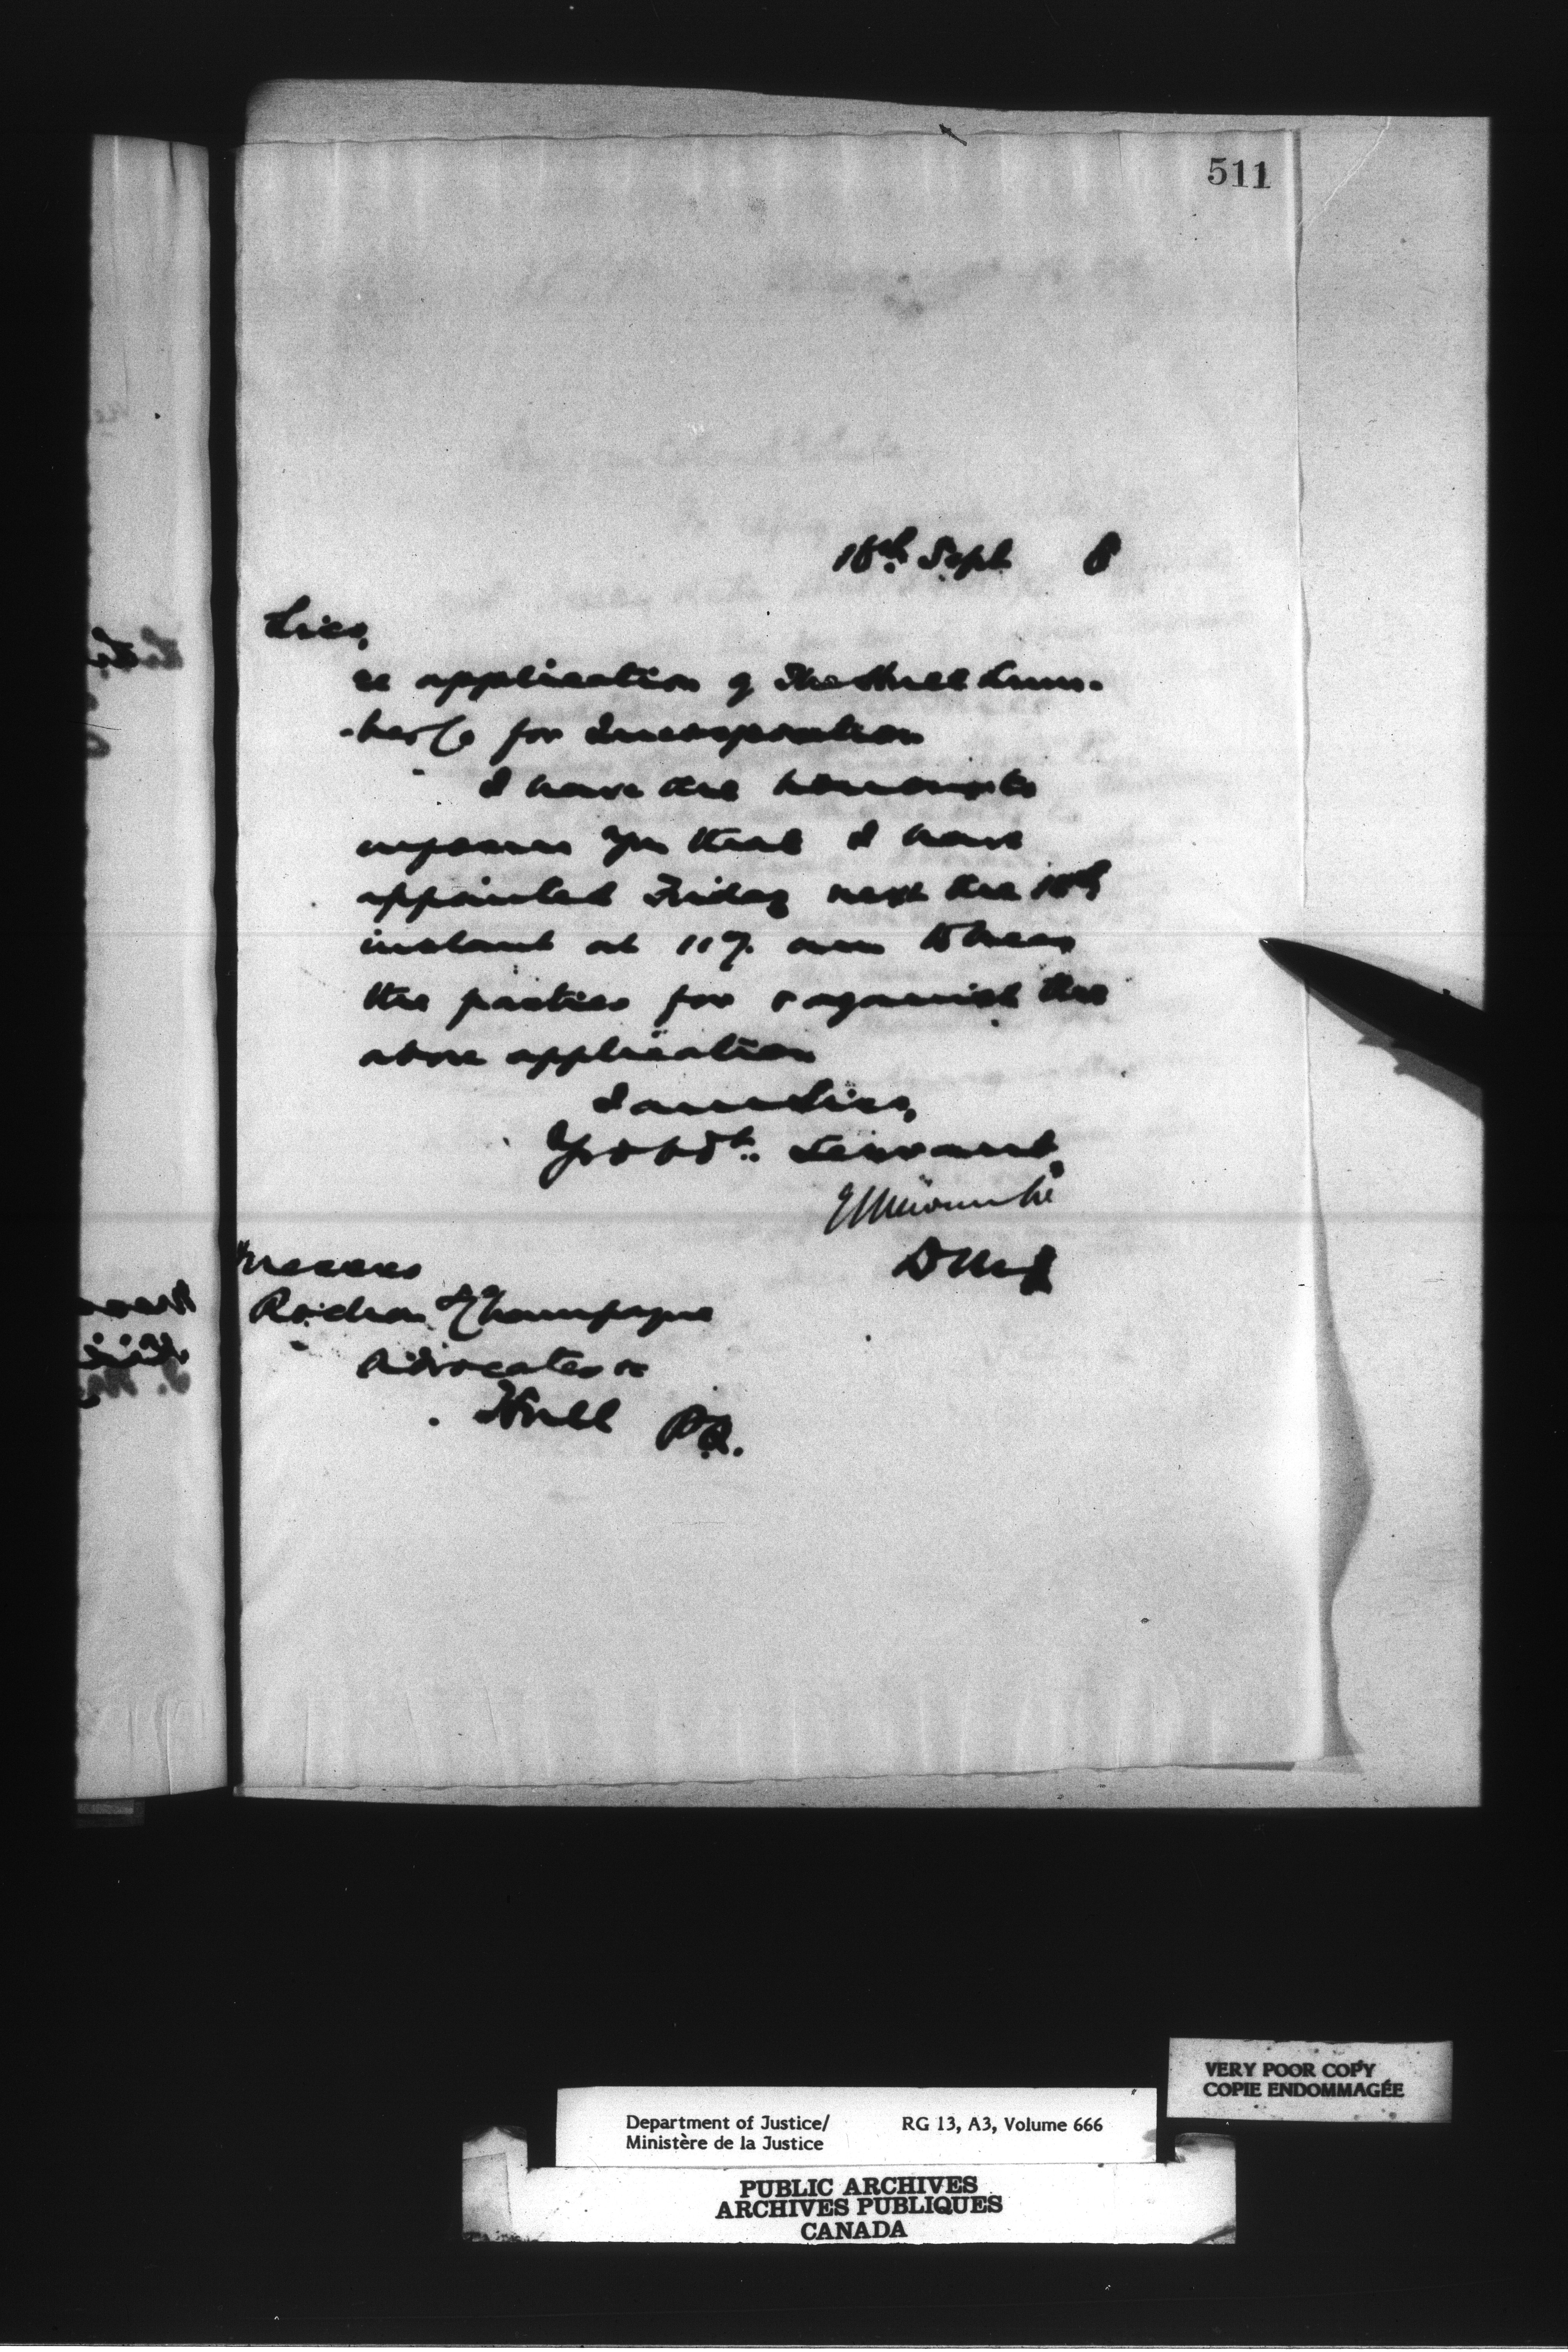 511
Sept 8
Sirs,
re application of The Hull Lum-
-ber Co for Incorporation
I have the honour to
inform you that I have
appointed Friday next the
instant at 11 am to hear
the parties for & against the
above application
I am Sirs,
Yr obdt. Servant
D M J
Messrs
& Champagne
Advocates &c
Hull P.Q.
VERY POOR COPY
COPIE ENDOMMAGÉE
Department of Justice/ RG 13, A3, Volume 666
Ministère de la Justice
PUBLIC ARCHIVES
ARCHIVES PUBLIQUES
CANADA